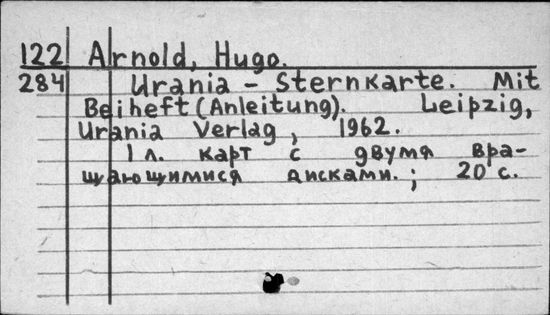 122 Arnold, Hugo.
284 Urania - Sternkarte. Mit
Beiheft (Anleitung). Leipzig,
Urania Verlag, 1962.
1 л. карт с двумя вра-
щающимися дисками.; 20 с.